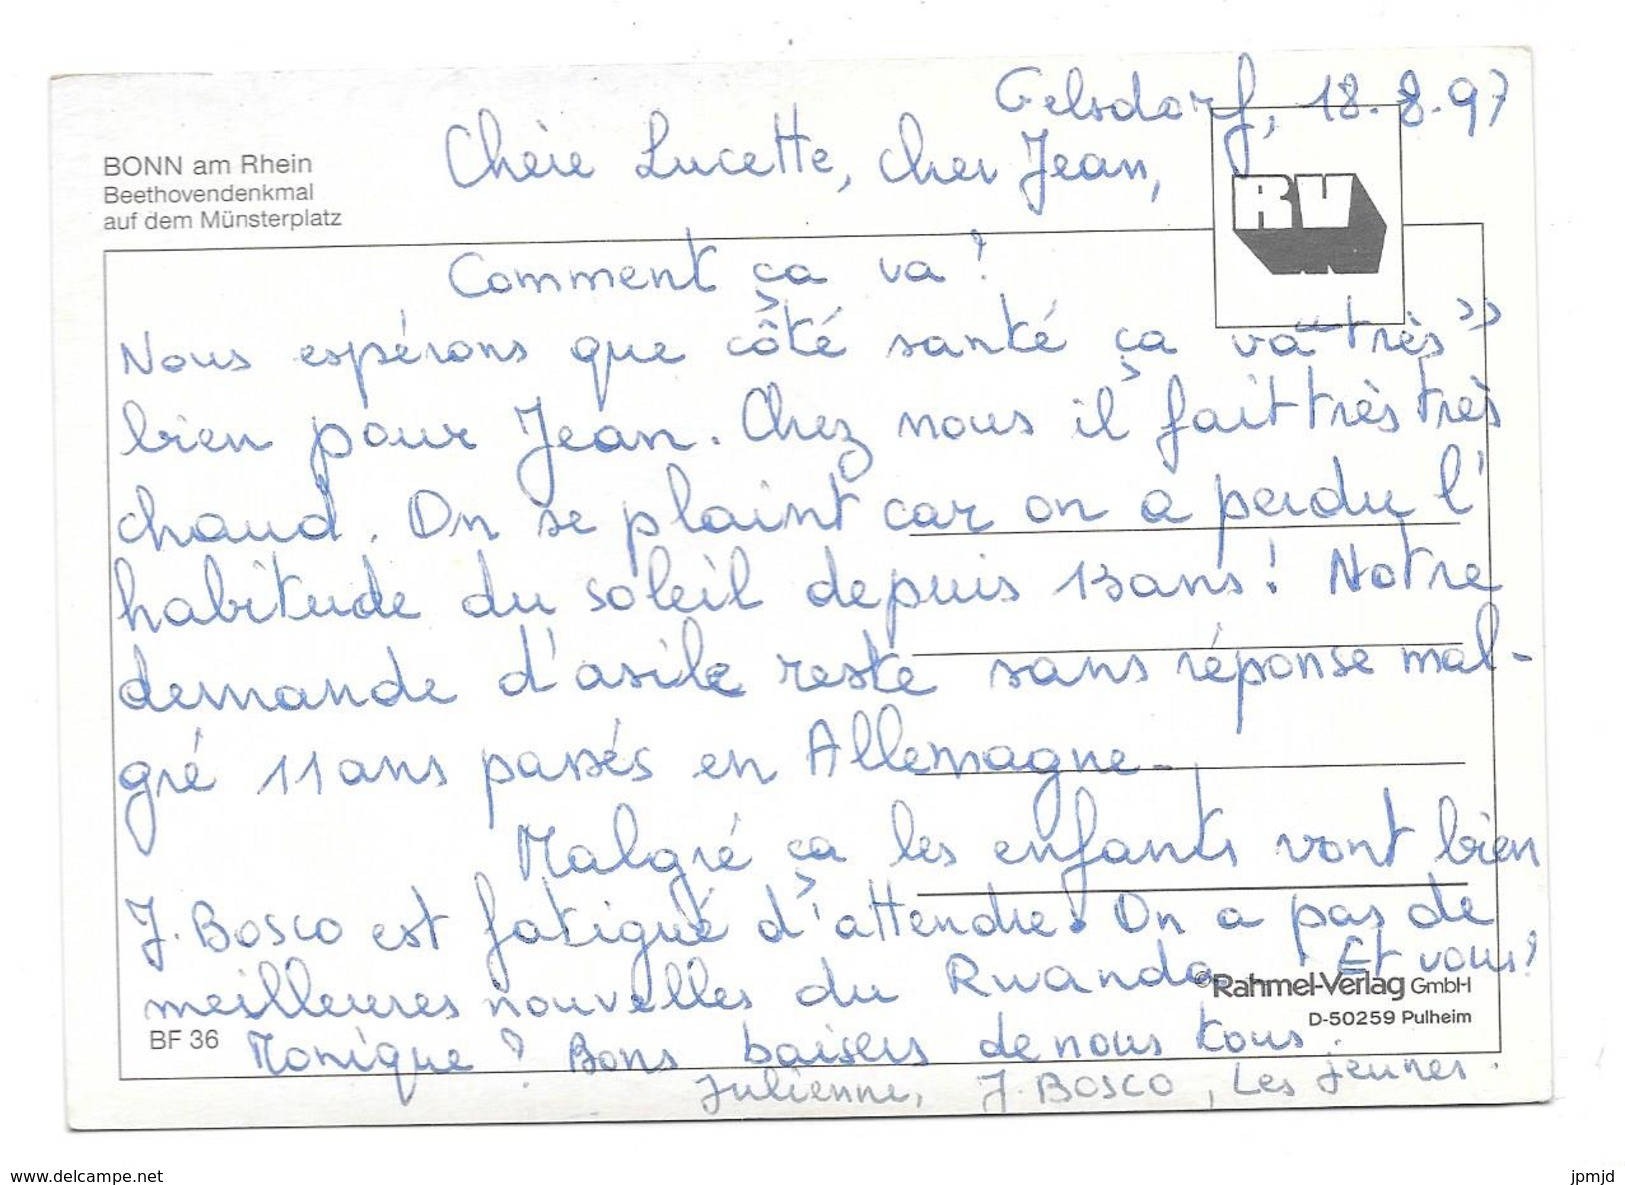 Gelsdorf, 18.8.97
BONN am Rhein
Beethovendenkmal
auf dem Münsterplatz
Chère Lucette, cher Jean,
RV
Comment ça va?
Nous espérons que côté santé ça va "très"
bien pour Jean. Chez nous il fait très très
chaud. On se plaint car on a perdu l'
habitude du soleil depuis 13 ans! Notre
demande d'asile reste sans réponse mal-
gré 11 ans passés en Allemagne.
Malgré ça les enfants vont bien
J. Bosco est fatigué d'attendre. On a pas de
meilleures nouvelles du Rwanda. Et vous?
©Rahmel-Verlag GmbH
D-50259 Pulheim
BF 36
Monique? Bons baisers de nous tous.
Julienne, J. BOSCO, Les jeunes.
www.delcampe.net
jpmjd